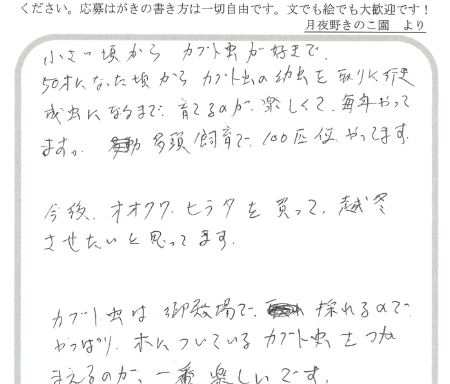 ください。応募はがきの書き方は一切自由です。文でも絵でも大歓迎です！
月夜野きのこ園　より
小さい頃から カブト虫が好きで、
50才になった頃から カブト虫の幼虫を 取りに行き
成虫になるまで、育てるのが、楽しくて、毎年やって
ますが、多頭飼育で、100匹位 やってます。
今後、オオクワ、ヒラタを買って、越冬
させたいと思ってます。
カブト虫は 御殿場で、採れるので、
やっぱり、木についている カブト虫を つか
まえるのが、一番 楽しいです。